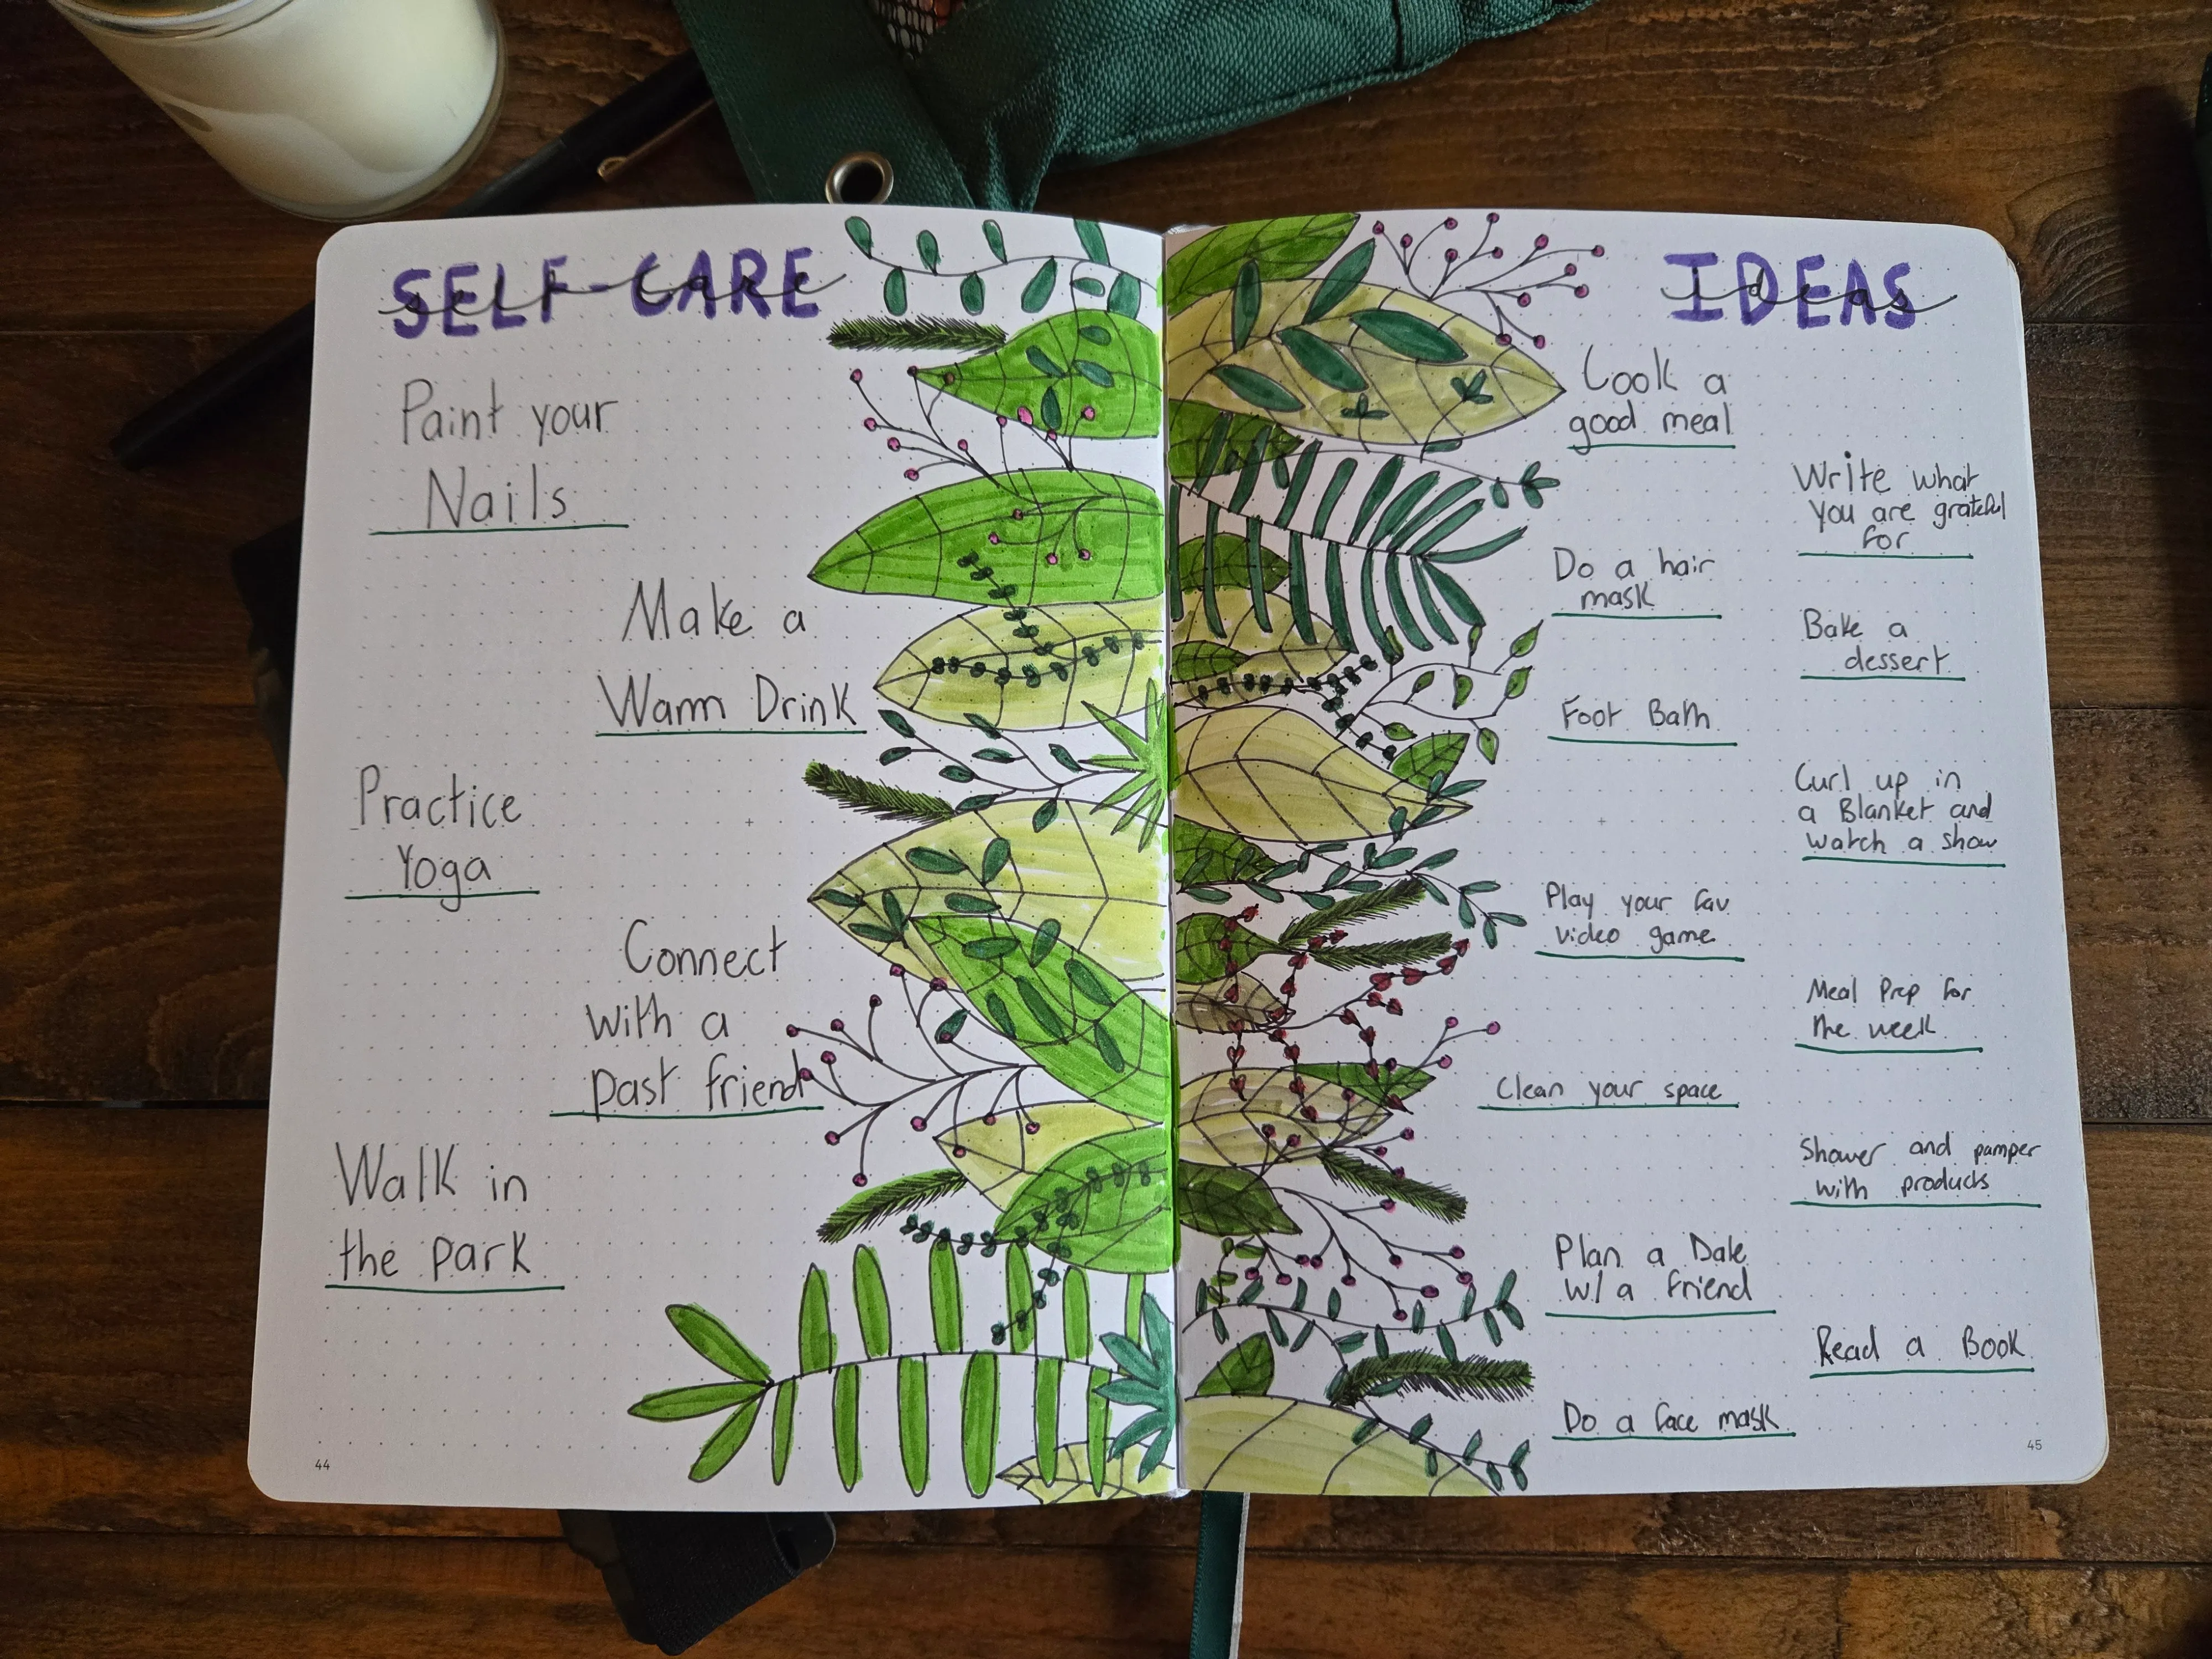 SELF-CARE
self-care
Paint your
Nails
Make a
Warm Drink
Practice
Yoga
Connect
with a
past friend
Walk in
the park
44
IDEAS
ideas
Cook a
good meal
Write what
you are grateful
for
Do a hair
mask
Bake a
dessert
Foot Bath
Curl up in
a Blanket and
watch a show
Play your fav
video game
Meal Prep for
the week
Clean your space
Shower and pamper
with products
Plan a Date
w/ a friend
Read a Book
Do a face mask
45